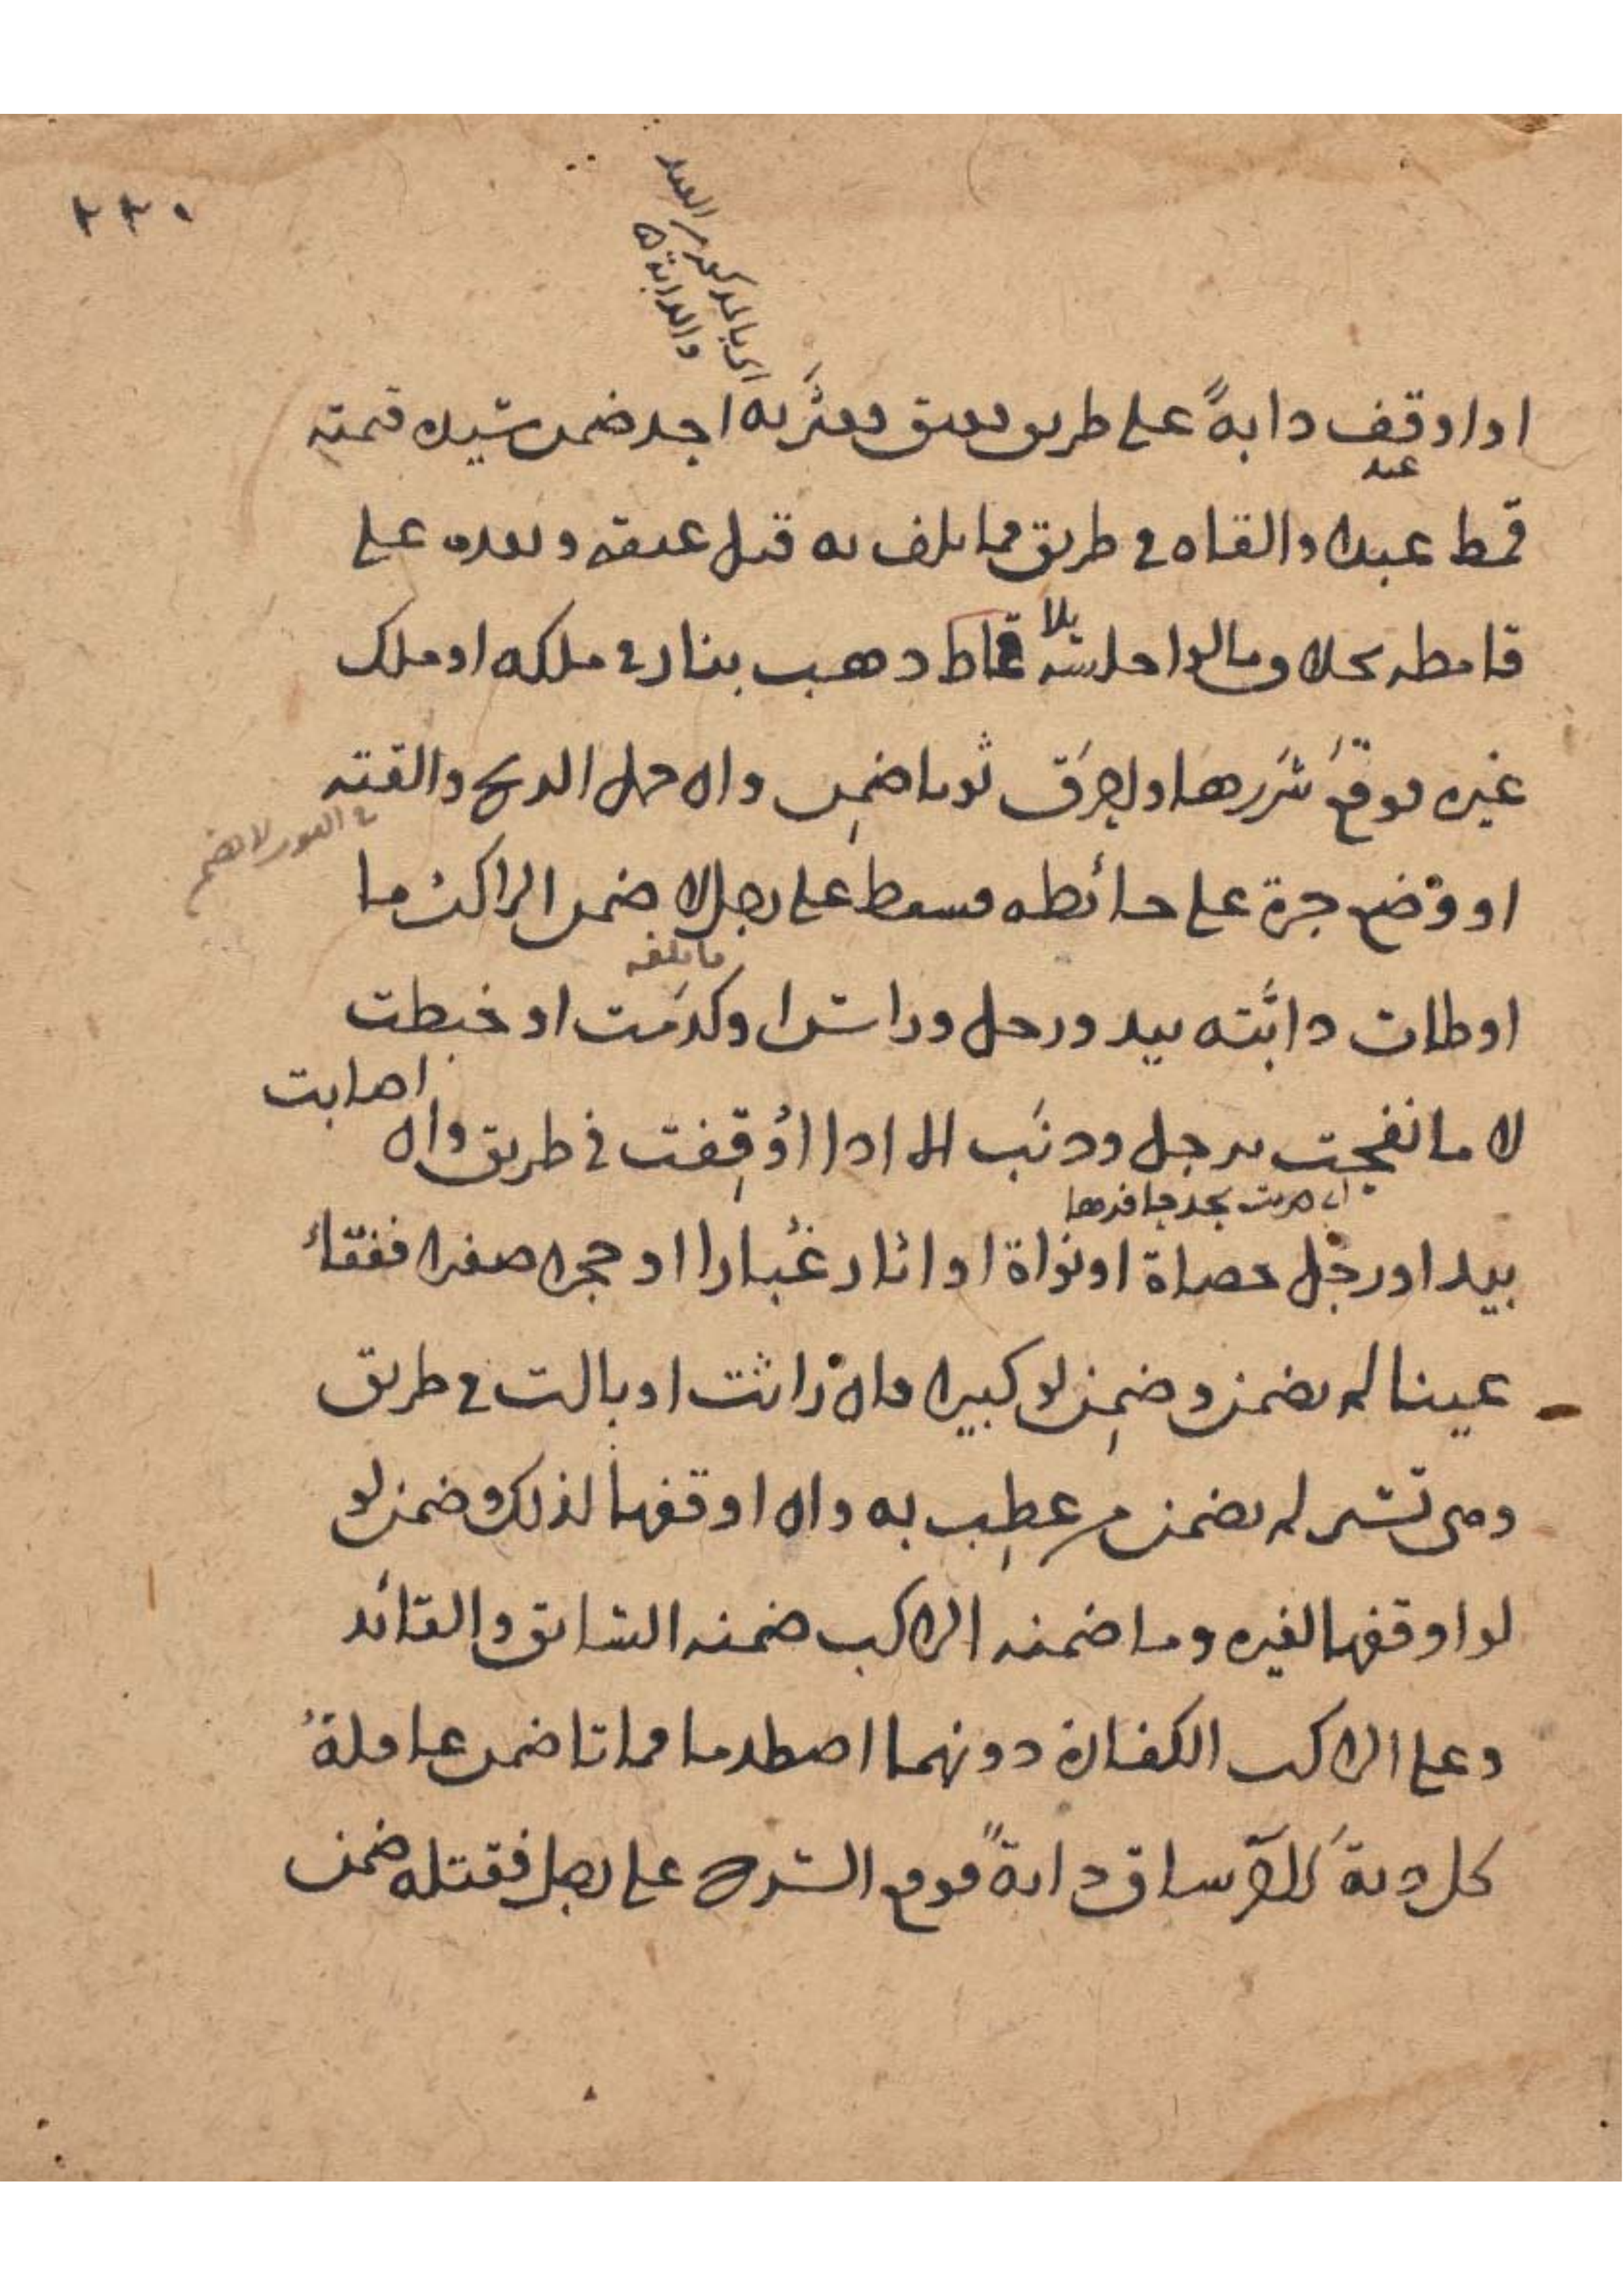 ٢٢٠
اي بالمذكور من العبد
والدابة
او اوقف دابةً على طريق فعتق فعثر به احد ضمن سيده قيمته
عبد
قمط عبدا والقاه في طريق فما تلف به قبل عتقه وبعده على
قامطه بحلا وقالوا
بلا
قماط ذهب بنار في ملكه او ملك
غيره فوقع شررها واحرق ثوبا ضمن وان حمل الريح والقته
في الفور لا يضمن
او وضع جرة على حائطه فسقط على رجل لا ضمن الراكب ما
ما تلفه
اوطات دابته بيد ورجل وراس او كدمت او خبطت
لا ما نفحت برجل وذنب الا اذا اوقفت في طريق وان اصابت
اي ضربت بحد حافرها
بيد او رجل حصاة او نواة او اثار غبارا او حجرا صغيرا ففقا
عينا لم يضمن وضمن لو كبيرا فان راثت او بالت في طريق
وهي تسير لم يضمن من عطب به وان اوقفها لذلك وضمن لو
لو اوقفها لغيره وما ضمنه الراكب ضمنه السائق والقائد
وعلى الراكب الكفارة دونهما اصطدما فماتا ضمن عاقلة
كل دية الاخر ساق دابة فوقع السرج على رجل فقتله ضمن